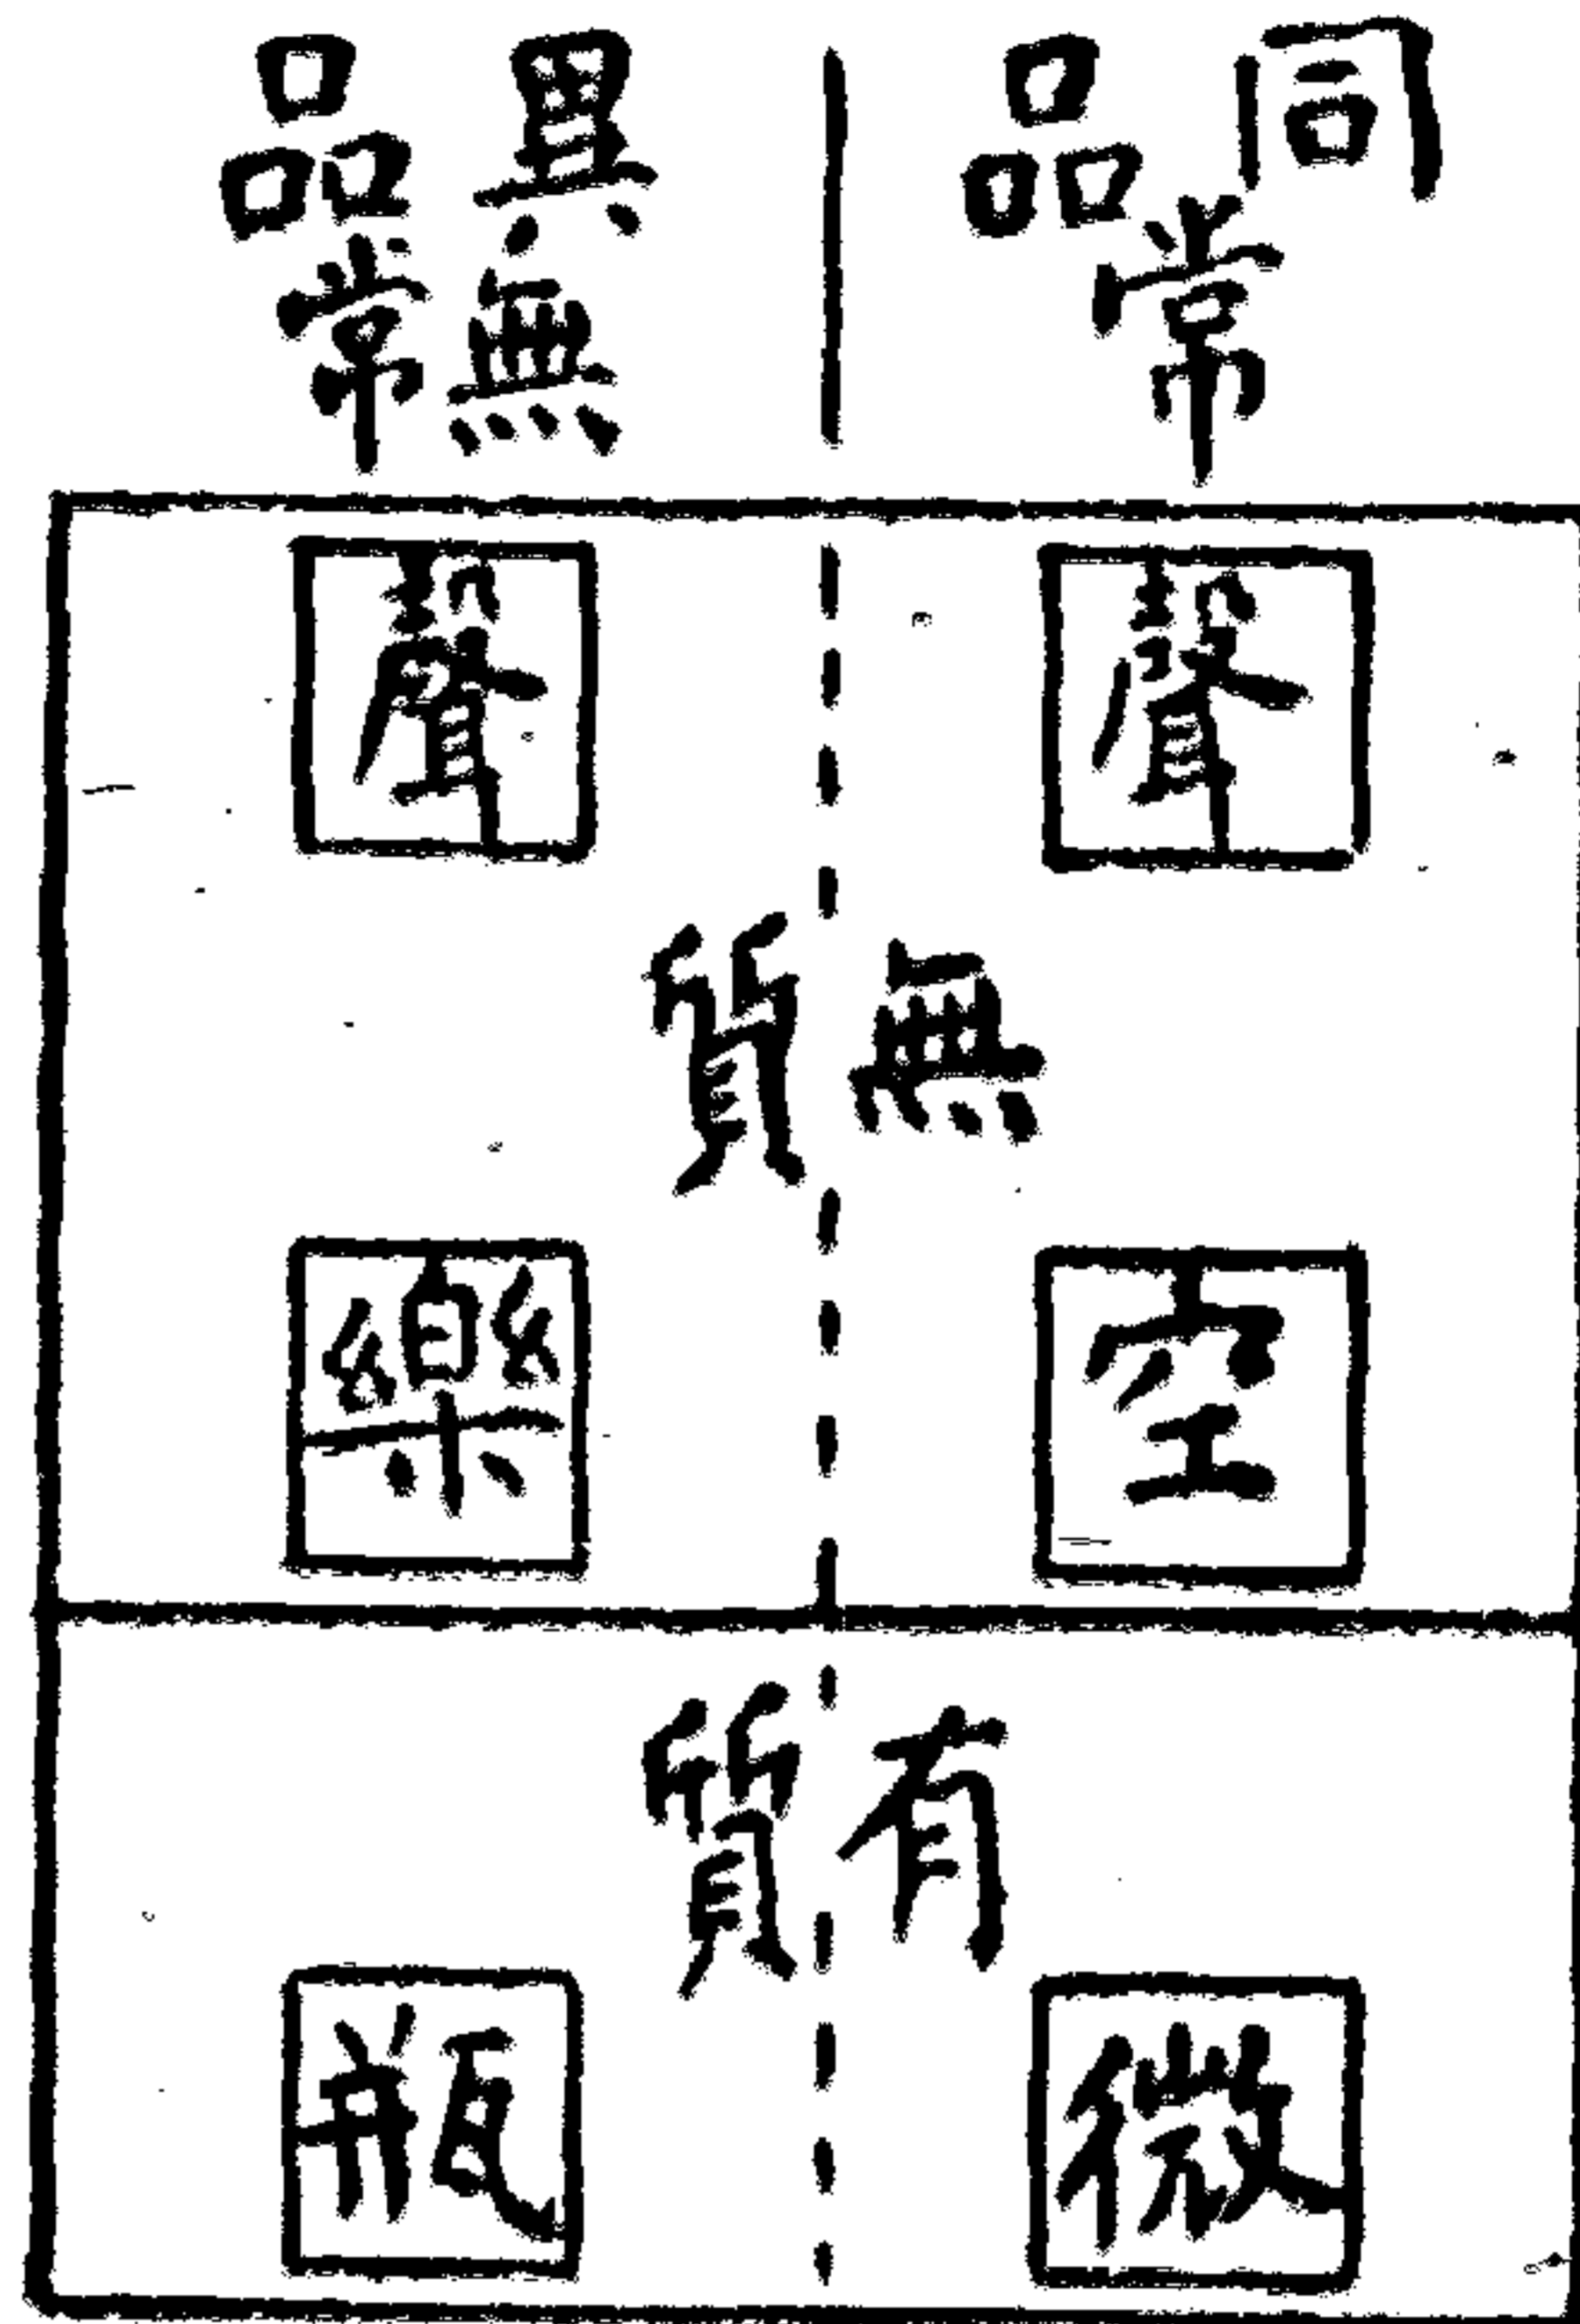 同品
常
異品
無常
聲
聲
無質
空
樂
有質
微
瓶